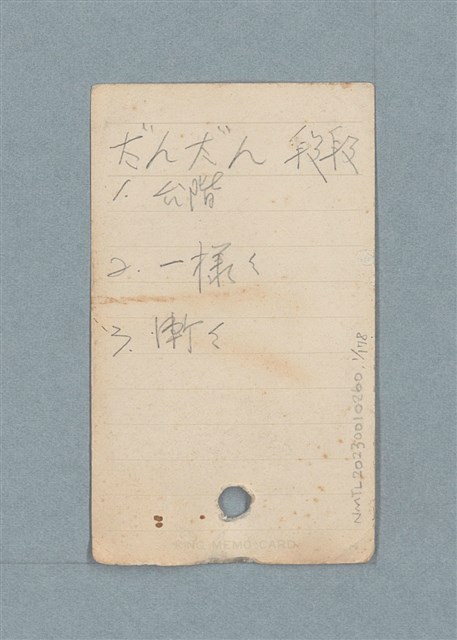 だんだん 段段
1. 台階
2. 一樣々
3. 漸々
NMTL20230010260. 1/178
KING MEMO CARD